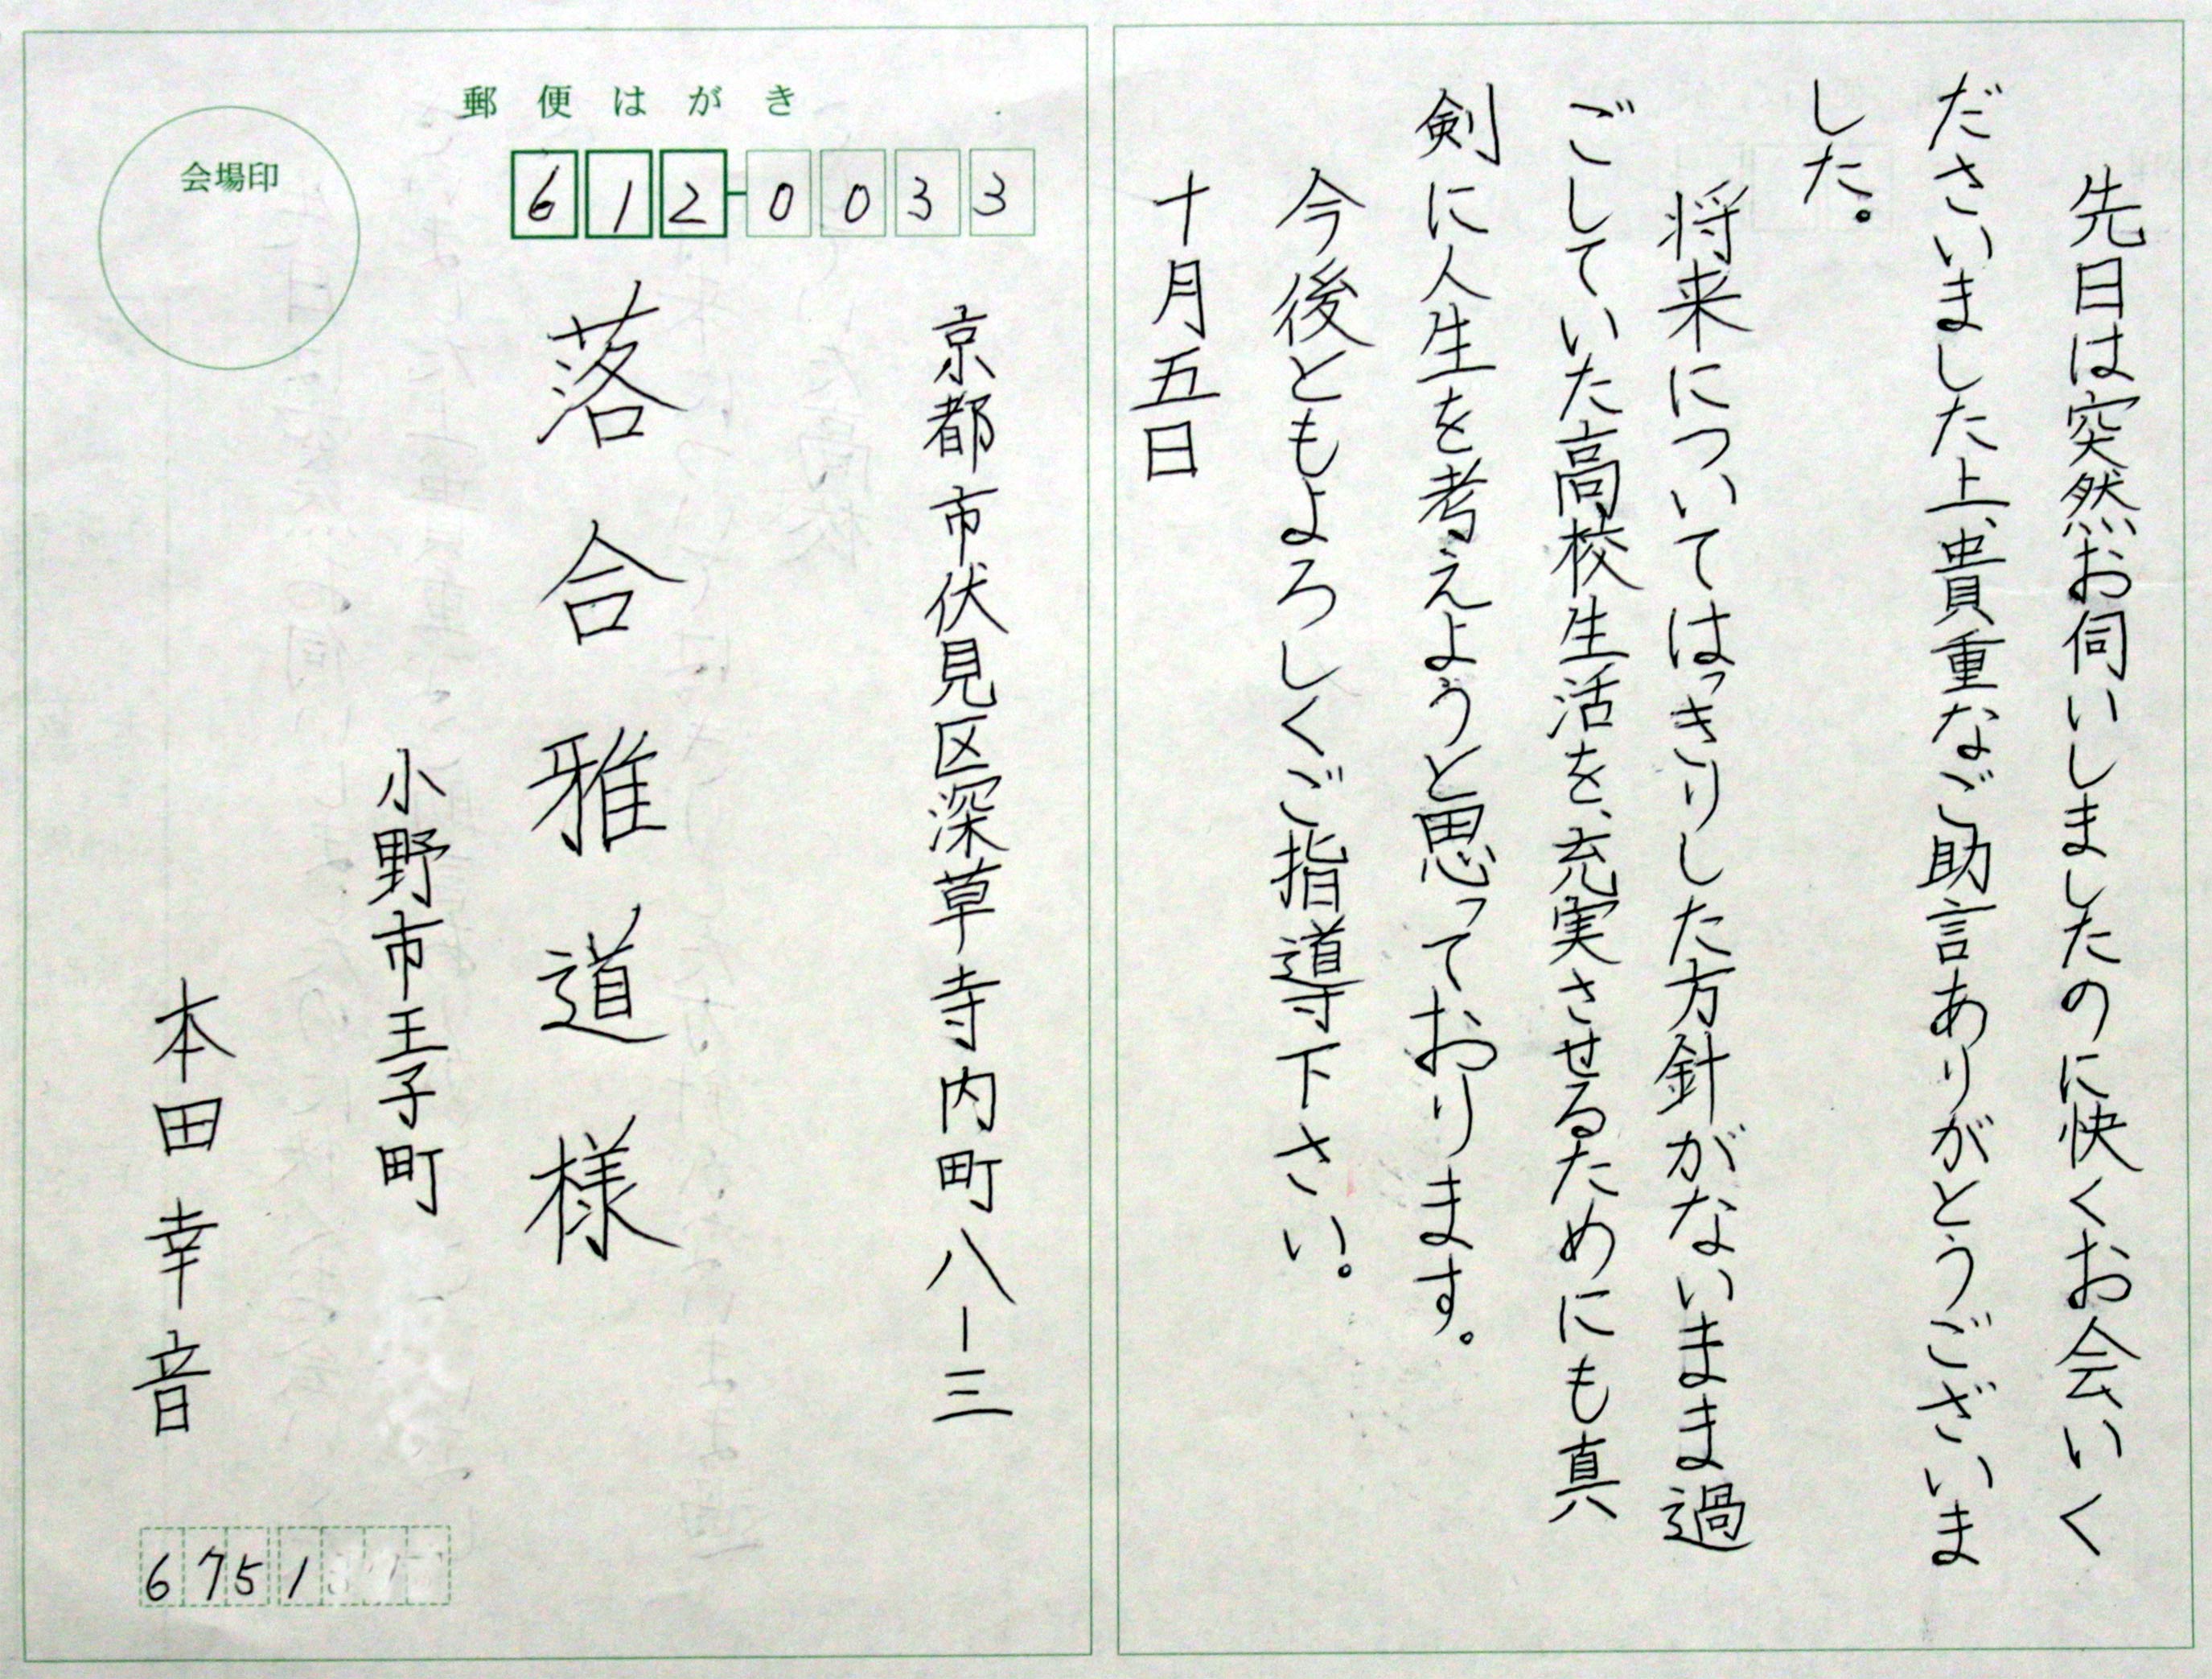 郵便はがき
会場印
612-0033
京都市伏見区深草寺内町八-三
落合雅道様
小野市王子町
本田幸音
6751
先日は突然お伺いしましたのに快くお会いく
ださいました上、貴重なご助言ありがとうございま
した。
将来についてはっきりした方針がないまま過
ごしていた高校生活を、充実させるためにも真
剣に人生を考えようと思っております。
今後ともよろしくご指導下さい。
十月五日